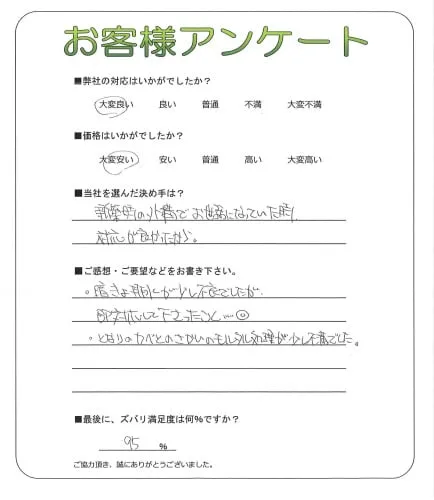 お客様アンケート
■弊社の対応はいかがでしたか？
大変良い 良い 普通 不満 大変不満
■価格はいかがでしたか？
大変安い 安い 普通 高い 大変高い
■当社を選んだ決め手は？
でお世話になっていた時、
対応が良かったから。
■ご感想・ご要望などをお書き下さい。
が少し不良でしたが、
即対応して下さったこと…
・となりのカベとのさかいのモルタル処理が少し不満でした。
■最後に、ズバリ満足度は何％ですか？
95 ％
ご協力頂き、誠にありがとうございました。